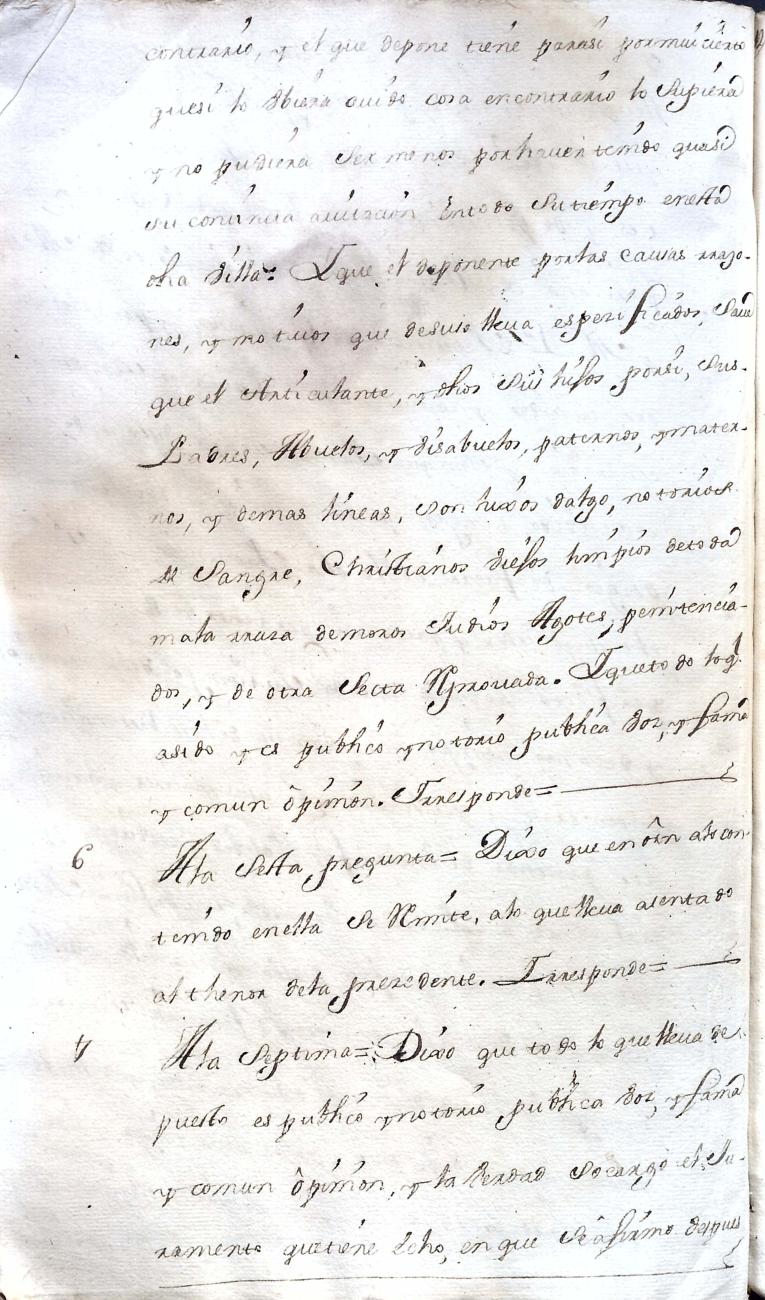 contrario, y el que depone tiene parasi por mui cierto
quesi lo Vbiera auido cosa encontrario lo Supiera
y no pudiera Ser menos porhauer tenido quasi
su continua auitacion Entodo Sutiempo enesta
dha Villa= Yque el deponente porlas causas rrazo-
nes, y motiuos que desuso lleua espezificados, Saue
que el Articulante, y dhos Sus hijos porsi, Sus
Padres, Abuelos, y Visabuelos, paternos, y mater-
nos, y demas lineas, Son hixos dalgo, notorios
de Sangre, Christianos Viejos limpios detoda
mala rraza demoros Judios Agotes, penitencia-
dos, y de otra Secta Rprouada. Yquetodo loq.
asido y es publico ynotorio publica Voz, y fama
y comun opinion. Yrresponde=
6 Ala Sesta pregunta= Dixo que enorn alo con-
tenido enella Se Rmite, alo quelleua asentado
al thenor dela prezedente. Yrresponde=
7 Ala Septima= Dixo que todo lo quelleua de
puesto es publico ynotorio publica Voz, y fama
y comun opinion, y la Verdad Socargo el Ju-
ramento quetiene Echo, en que Se afirmo despues